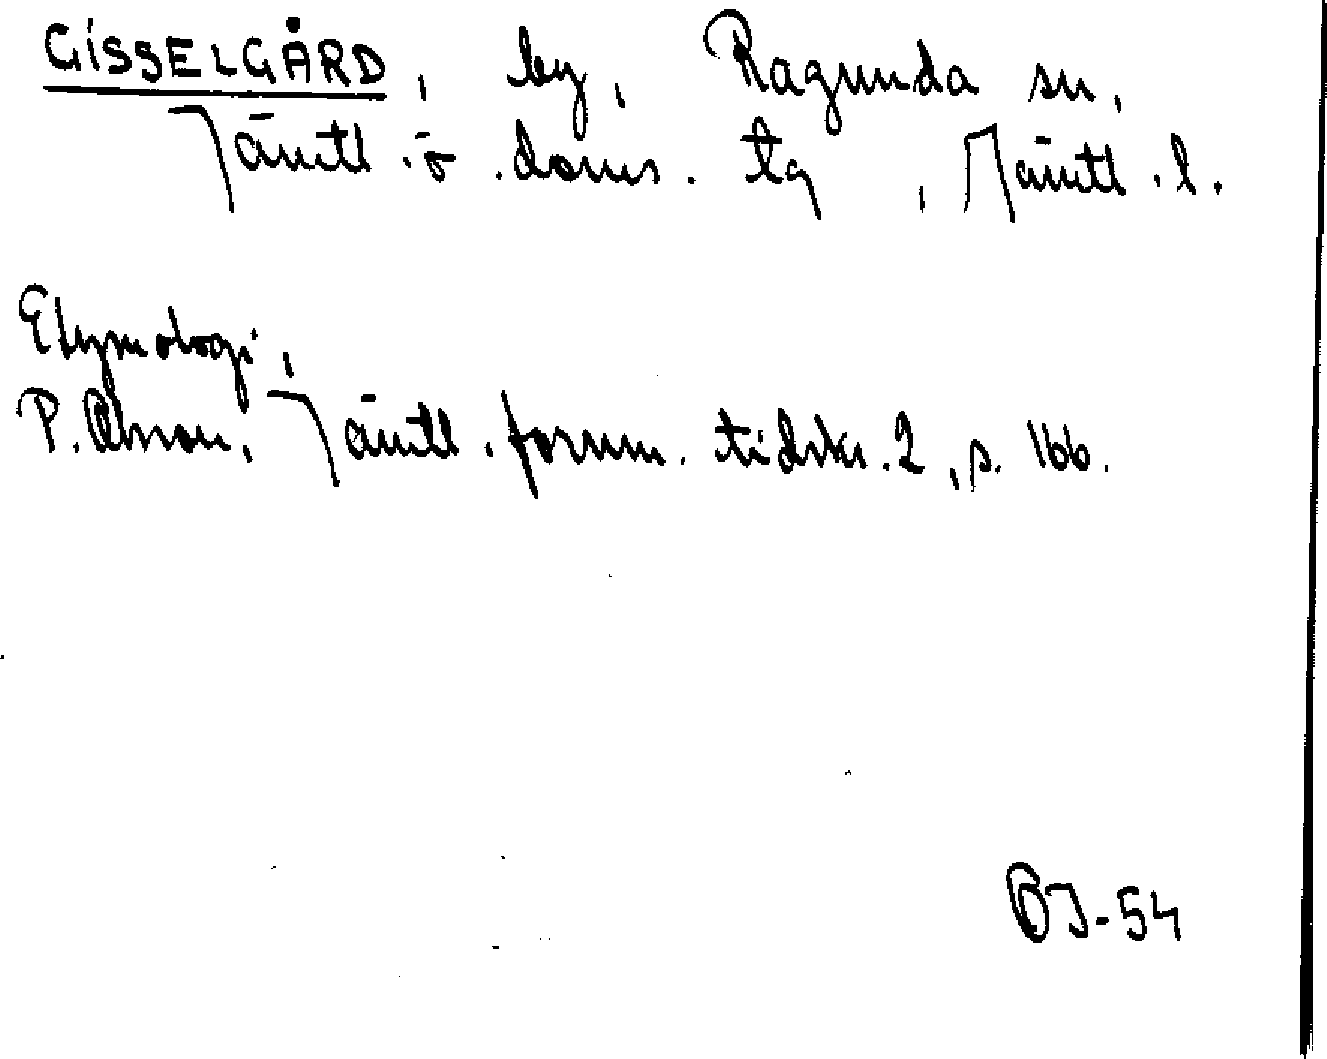 GISSELGÅRD, by, Ragunda sn,
Jämtl. ö. doms. tg, Jämtl. l.
Etymologi,
P. Olsson, Jämtl. fornm. tidskr. 2, s. 166.
BJ-54